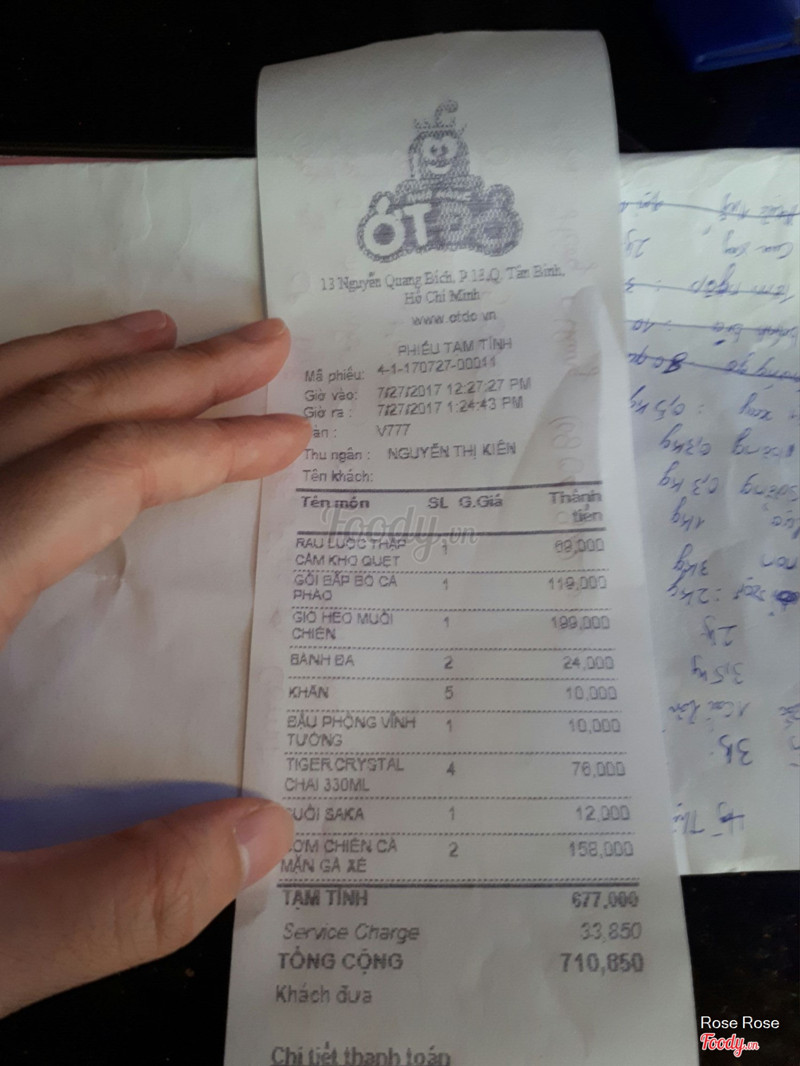 NHÀ HÀNG
ỚT ĐỎ
13 Nguyễn Quang Bích, P 13,Q. Tân Bình,
Hồ Chí Minh
www.otdo.vn
PHIẾU TẠM TÍNH
Mã phiếu: 4-1-170727-00011
Giờ vào: 7/27/2017 12:27:27 PM
Giờ ra : 7/27/2017 1:24:43 PM
àn : V777
Thu ngân : NGUYỄN THỊ KIÊN
Tên khách:
Tên món SL G.Giá Thành
tiền
RAU LUỘC THẬP 1 69,000
CẨM KHO QUẸT
GỎI BẮP BÒ CÀ 1 119,000
PHÁO
GIÒ HEO MUỐI 1 199,000
CHIÊN
BÁNH ĐA 2 24,000
KHĂN 5 10,000
ĐẬU PHỘNG VĨNH 1 10,000
TƯỜNG
TIGER CRYSTAL 4 76,000
CHAI 330ML
SUỐI SAKA 1 12,000
CƠM CHIÊN CÁ 2 158,000
MẶN GÀ XÉ
TẠM TÍNH 677,000
Service Charge 33,850
TỔNG CỘNG 710,850
Khách đưa
Chi tiết thanh toán
Foody.vn
2kg
: 0,5 kg
0,3 kg
0,3 kg
1kg
3kg
: 2kg
2kg
3,5 kg
3kg
Rose Rose
Foody.vn